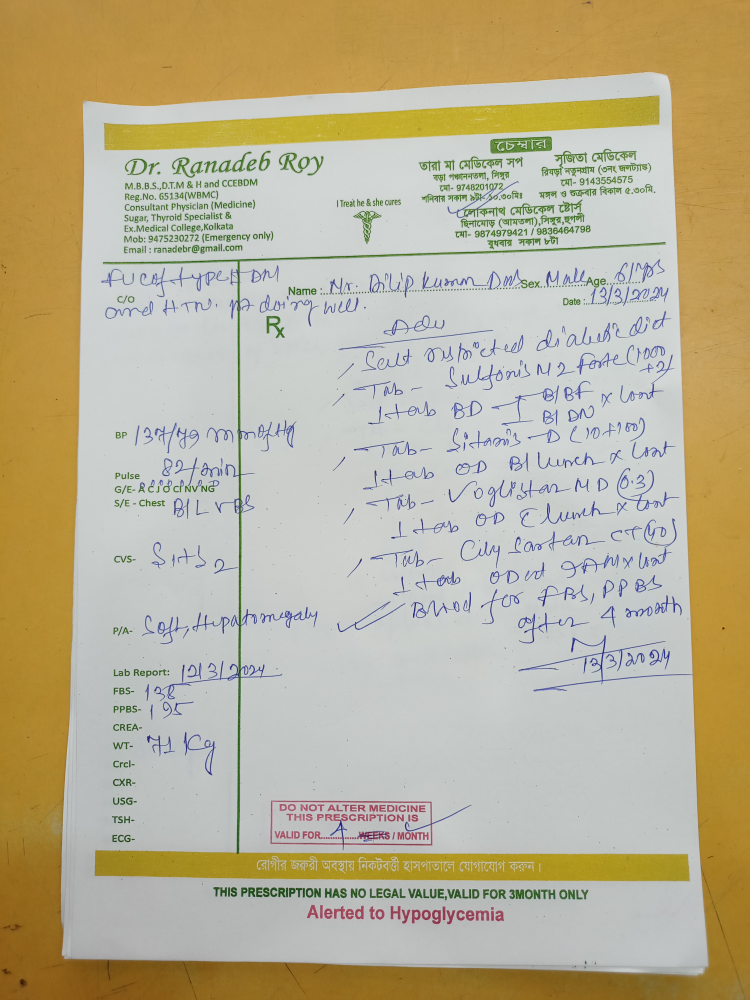 Dr. Ranadeb Roy
M.B.B.S.,D.T.M & H and CCEBDM
Reg.No. 65134(WBMC)
Consultant Physician (Medicine)
Sugar, Thyroid Specialist &
Ex.Medical College,Kolkata
Mob: 9475230272 (Emergency only)
Email : ranadebr@gmail.com
I Treat he & she cures
চেম্বার
তারা মা মেডিকেল সপ
বড়া পঞ্চাননতলা, সিঙ্গুর
মো- 9748201072
শনিবার সকাল ৯টা-১০.৩০মিঃ
সৃজিতা মেডিকেল
রিষড়া নতুনগ্রাম (৩নং জলট্যাঙ্ক)
মো- 9143554575
মঙ্গল ও শুক্রবার বিকাল ৫.৩০মি.
লোকনাথ মেডিকেল ষ্টোর্স
ছিনামোড় (আমতলা),সিঙ্গুর,হুগলী
মো- 9874979421 / 9836464798
বুধবার সকাল ৮টা
FUC of type II DM
C/O and HTN. pt doing well.
Name : Mr. Dilip Kumar Das Sex Male Age 61yrs
Date : 13/3/2024
Rx
Adv
Salt restricted diabetic diet
Tab- Sulfonis M2 Forte (1000+2)
1 tab BD - 1 B/BF
1 B/DN x cont
Tab- Sitanis-D (10+100)
1 tab OD B/lunch x cont
Tab- Voglistar MD (0.3)
1 tab OD c lunch x cont
Tab- City Sartan CT (40)
1 tab OD at 9AM x cont
Blood for FBS, PPBS
after 4 month
13/3/2024
BP 137/79 mm of Hg
Pulse 82/min
G/E- A C J O CI NV NG
S/E - Chest B/L VBS
CVS- S1+S2
P/A- Soft, Hepatomegaly
Lab Report: 12/3/2024
FBS- 138
PPBS- 195
CREA-
WT- 71 Kg
Crcl-
CXR-
USG-
TSH-
ECG-
DO NOT ALTER MEDICINE
THIS PRESCRIPTION IS
VALID FOR 4 WEEKS / MONTH
রোগীর জরুরী অবস্থায় নিকটবর্ত্তী হাসপাতালে যোগাযোগ করুন।
THIS PRESCRIPTION HAS NO LEGAL VALUE,VALID FOR 3MONTH ONLY
Alerted to Hypoglycemia